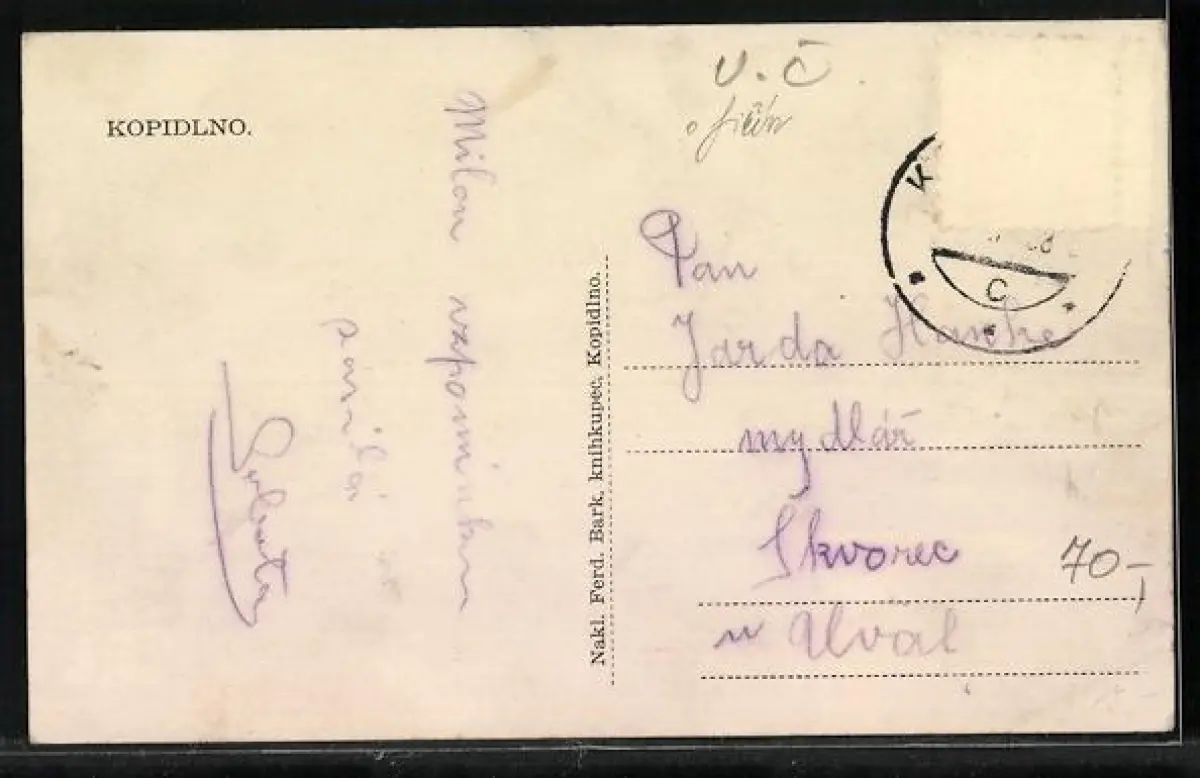 KOPIDLNO.
Milou vzpomínkou
posílá
Nakl. Ferd. Bark, knihkupec, Kopidlno.
V.Č.
o Jičín
K
C
Pan
Jarda
mydlář
Škvorec
u Úval
70,-